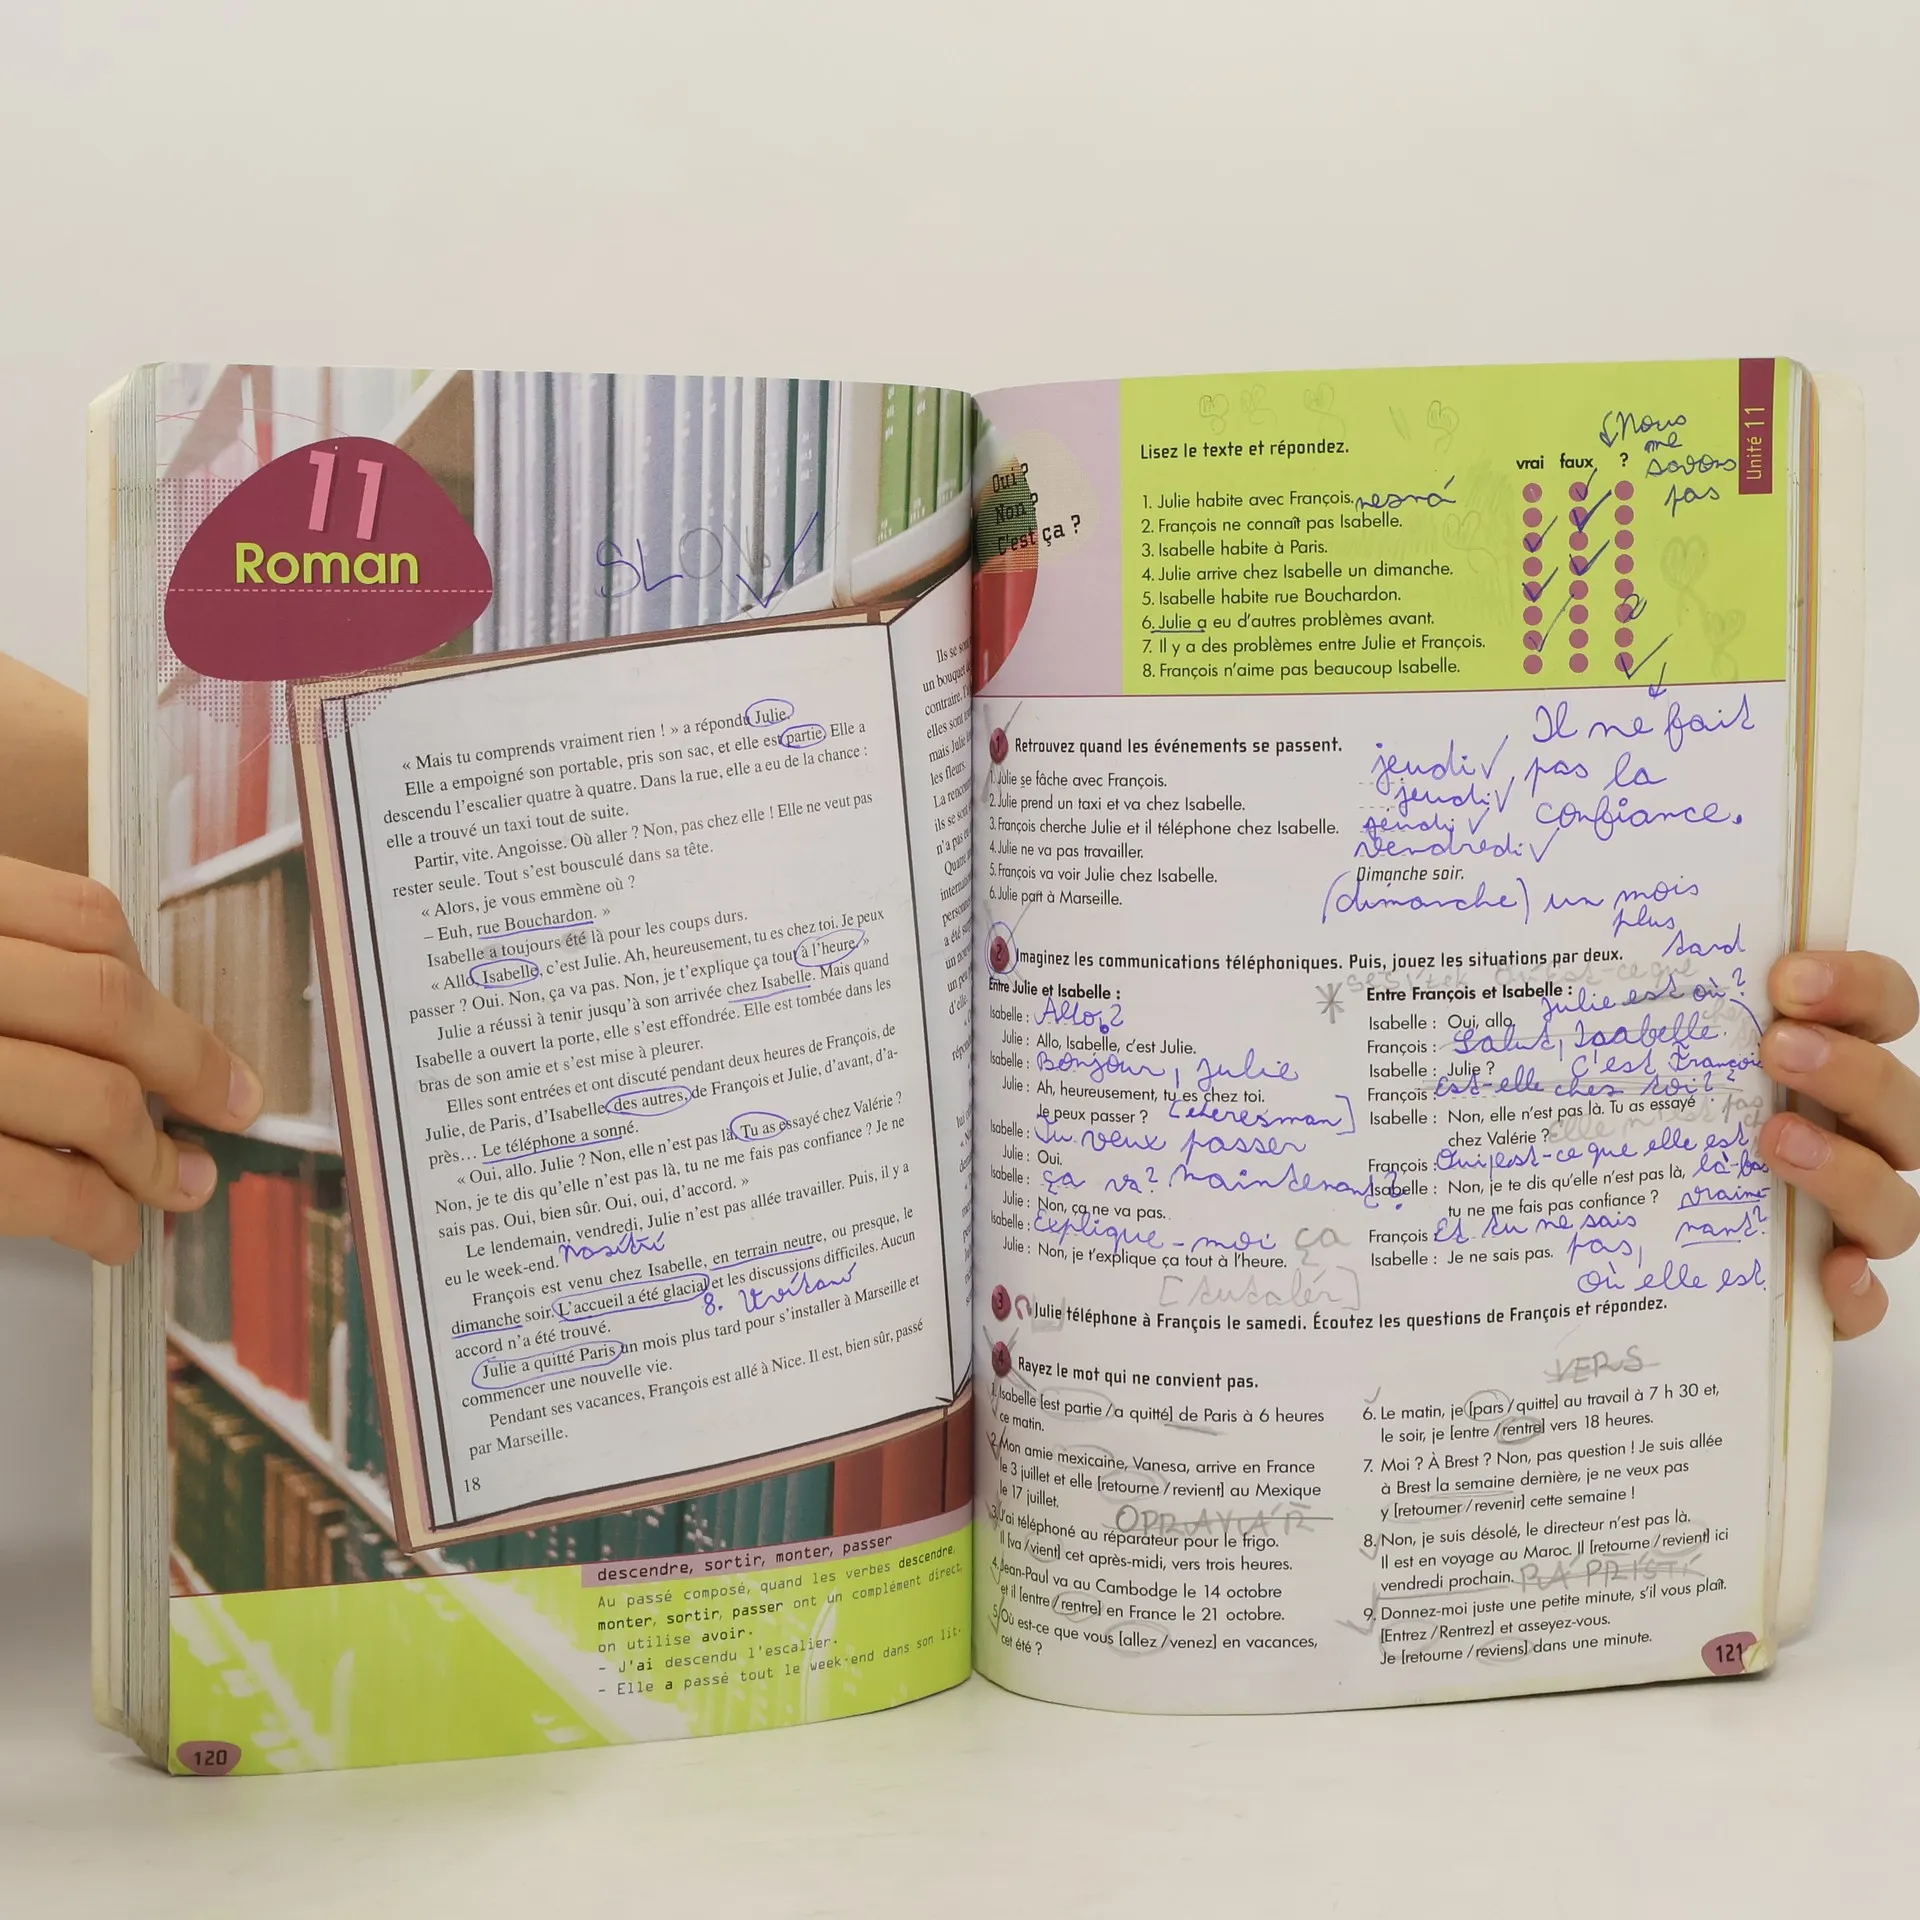 11
Roman
SLOV
« Mais tu comprends vraiment rien ! » a répondu Julie.
Elle a empoigné son portable, pris son sac, et elle est partie. Elle a
descendu l'escalier quatre à quatre. Dans la rue, elle a eu de la chance :
elle a trouvé un taxi tout de suite.
Partir, vite. Angoisse. Où aller ? Non, pas chez elle ! Elle ne veut pas
rester seule. Tout s'est bousculé dans sa tête.
« Alors, je vous emmène où ?
– Euh, rue Bouchardon. »
Isabelle a toujours été là pour les coups durs.
« Allo, Isabelle, c'est Julie. Ah, heureusement, tu es chez toi. Je peux
passer ? Oui. Non, ça va pas. Non, je t'explique ça tout à l'heure. »
Julie a réussi à tenir jusqu'à son arrivée chez Isabelle. Mais quand
Isabelle a ouvert la porte, elle s'est effondrée. Elle est tombée dans les
bras de son amie et s'est mise à pleurer.
Elles sont entrées et ont discuté pendant deux heures de François, de
Julie, de Paris, d'Isabelle, des autres, de François et Julie, d'avant, d'a-
près… Le téléphone a sonné.
« Oui, allo. Julie ? Non, elle n'est pas là. Tu as essayé chez Valérie ?
Non, je te dis qu'elle n'est pas là, tu ne me fais pas confiance ? Je ne
sais pas. Oui, bien sûr. Oui, oui, d'accord. »
Le lendemain, vendredi, Julie n'est pas allée travailler. Puis, il y a
eu le week-end.
François est venu chez Isabelle, en terrain neutre, ou presque, le
dimanche soir. L'accueil a été glacial et les discussions difficiles. Aucun
accord n'a été trouvé. 8.
Julie a quitté Paris un mois plus tard pour s'installer à Marseille et
commencer une nouvelle vie.
Pendant ses vacances, François est allé à Nice. Il est, bien sûr, passé
par Marseille.
18
descendre, sortir, monter, passer
Au passé composé, quand les verbes descendre,
monter, sortir, passer ont un complément direct,
on utilise avoir.
– J'ai descendu l'escalier.
– Elle a passé tout le week-end dans son lit.
120
Unité 11
Oui ?
Non ?
C'est ça ?
Lisez le texte et répondez.
vrai faux ?
Nous
ne
savons
pas
1. Julie habite avec François.
2. François ne connaît pas Isabelle.
3. Isabelle habite à Paris.
4. Julie arrive chez Isabelle un dimanche.
5. Isabelle habite rue Bouchardon.
6. Julie a eu d'autres problèmes avant.
7. Il y a des problèmes entre Julie et François.
8. François n'aime pas beaucoup Isabelle.
Il ne fait
pas la
confiance.
1 Retrouvez quand les événements se passent.
1. Julie se fâche avec François. jeudi
2. Julie prend un taxi et va chez Isabelle. jeudi
3. François cherche Julie et il téléphone chez Isabelle. jeudi
4. Julie ne va pas travailler. vendredi
5. François va voir Julie chez Isabelle. Dimanche soir.
6. Julie part à Marseille. (dimanche) un mois
plus
tard
2 Imaginez les communications téléphoniques. Puis, jouez les situations par deux.
Entre Julie et Isabelle :
Isabelle : Allo?
Julie : Allo, Isabelle, c'est Julie.
Isabelle : Bonjour, Julie
Julie : Ah, heureusement, tu es chez toi.
Je peux passer ?
Isabelle : Tu veux passer
Julie : Oui.
Isabelle : ça va? maintenant?
Julie : Non, ça ne va pas.
Isabelle : Explique-moi ça
Julie : Non, je t'explique ça tout à l'heure.
Entre François et Isabelle :
Julie est où?
Isabelle : Oui, allo.
François : Salut, Isabelle.
C'est François
Isabelle : Julie ?
François : Est-elle chez toi?
Isabelle : Non, elle n'est pas là. Tu as essayé
chez Valérie ?
François : Oui, est-ce que elle est
là-bas
Isabelle : Non, je te dis qu'elle n'est pas là,
tu ne me fais pas confiance ?
François : Et tu ne sais
pas,
où elle est.
Isabelle : Je ne sais pas.
3 Julie téléphone à François le samedi. Écoutez les questions de François et répondez.
4 Rayez le mot qui ne convient pas.
VERS
1. Isabelle [est partie / a quitté] de Paris à 6 heures
ce matin.
2. Mon amie mexicaine, Vanesa, arrive en France
le 3 juillet et elle [retourne / revient] au Mexique
le 17 juillet.
3. J'ai téléphoné au réparateur pour le frigo.
Il [va / vient] cet après-midi, vers trois heures.
4. Jean-Paul va au Cambodge le 14 octobre
et il [entre / rentre] en France le 21 octobre.
5. Où est-ce que vous [allez / venez] en vacances,
cet été ?
6. Le matin, je [pars / quitte] au travail à 7 h 30 et,
le soir, je [entre / rentre] vers 18 heures.
7. Moi ? À Brest ? Non, pas question ! Je suis allée
à Brest la semaine dernière, je ne veux pas
y [retourner / revenir] cette semaine !
8. Non, je suis désolé, le directeur n'est pas là.
Il est en voyage au Maroc. Il [retourne / revient] ici
vendredi prochain.
9. Donnez-moi juste une petite minute, s'il vous plaît.
[Entrez / Rentrez] et asseyez-vous.
Je [retourne / reviens] dans une minute.
121